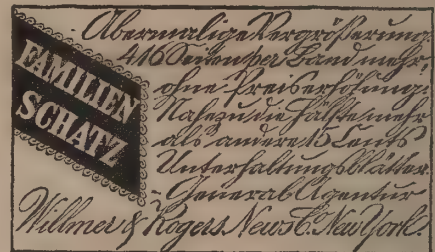 Abermalige Vergrößerung:
416 Seiten per Band mehr,
FAMILIEN
SCHATZ
ohne Preiserhöhung:
Nahezu die Hälfte mehr
als andere 15 Cents
Unterhaltungsblätter.
General Agentur
Willmer & Rogers News C. New York.